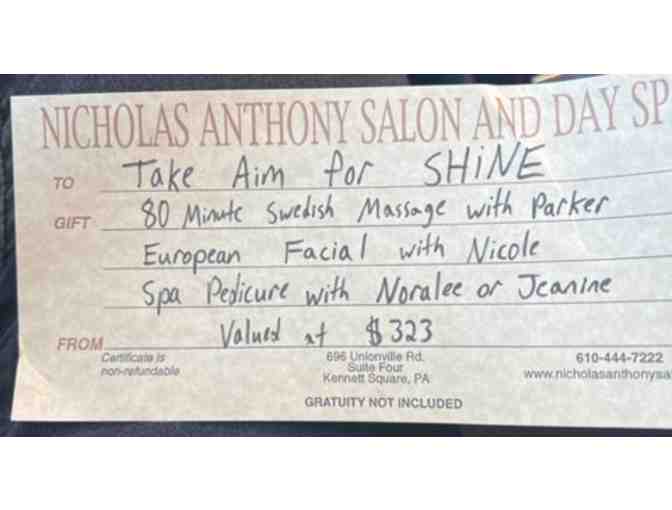 NICHOLAS ANTHONY SALON AND DAY SP
TO Take Aim for SHiNE
GIFT 80 Minute Swedish Massage with Parker
European Facial with Nicole
Spa Pedicure with Noralee or Jeanine
FROM Valued at $323
Certificate is
non-refundable
696 Unionville Rd.
Suite Four
Kennett Square, PA
610-444-7222
www.nicholasanthonysa
GRATUITY NOT INCLUDED